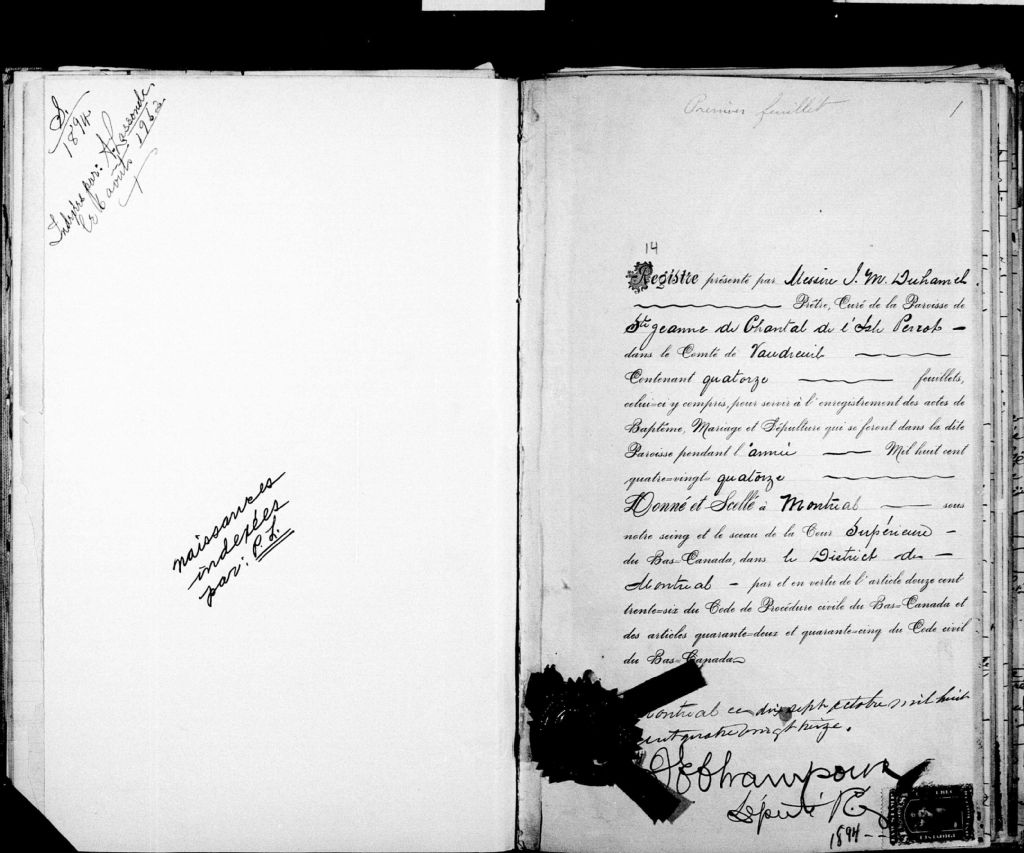 S.
1894
Indexée par: A. Lassonde
le 6 août 1962
naissances
indexées
par: P. L.
Premier feuillet
1
14
Registre présenté par Messire J. M. Duhamel
Prêtre, Curé de la Paroisse de
Ste Jeanne de Chantal de l'Isle Perrot
dans le Comté de Vaudreuil
Contenant quatorze feuillets,
celui=ci y compris, pour servir à l'enregistrement des actes de
Baptême, Mariage et Sépulture qui se feront dans la dite
Paroisse pendant l'année Mil huit cent
quatre=vingt= quatorze
Donné et Scellé à Montréal sous
notre seing et le sceau de la Cour Supérieure
du Bas=Canada, dans le District de
Montreal par et en vertu de l'article douze cent
trente=six du Code de Procédure civile du Bas=Canada et
des articles quarante=deux et quarante=cinq du Code civil
du Bas=Canada
Montréal ce dix sept octobre mil huit
cent quatre vingt treize.
Champoux
Député P.
1894